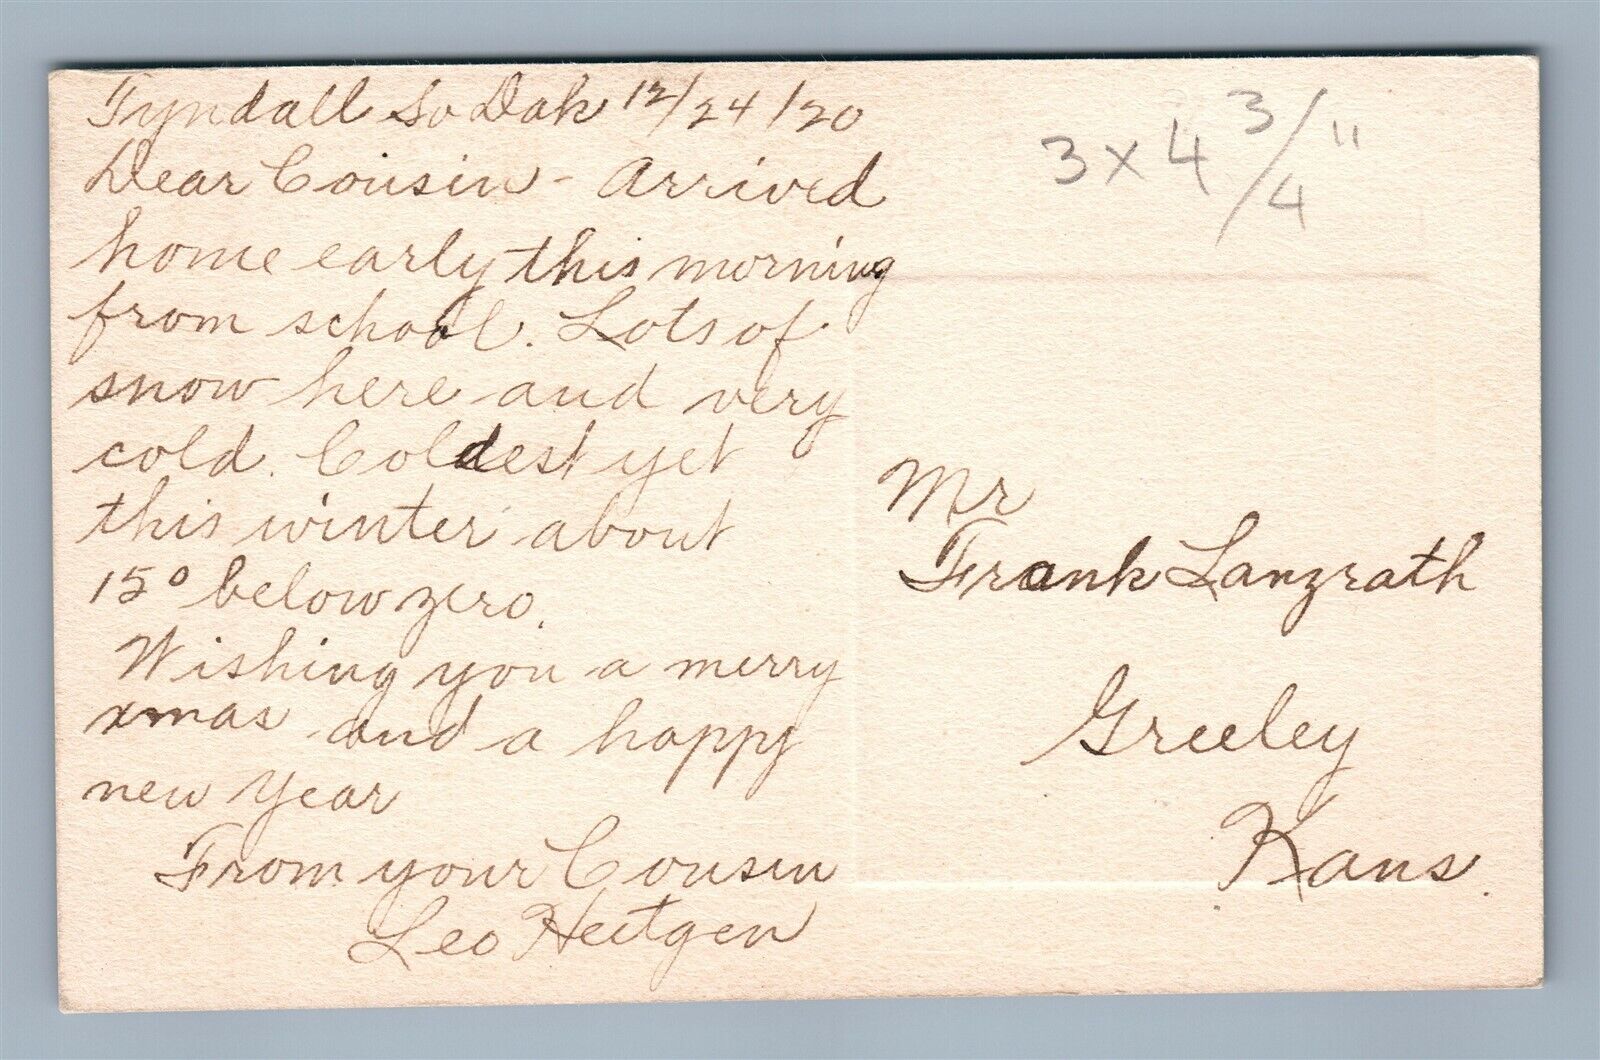 Tyndall So Dak 12/24/20
Dear Cousin - Arrived
home early this morning
from school. Lots of
snow here and very
cold. Coldest yet
this winter about
15° below zero.
Wishing you a merry
xmas and a happy
new year
From your Cousin
Leo Heitgen
3 x 4 3/4"
Mr
Frank Lanzrath
Greeley
Kans.